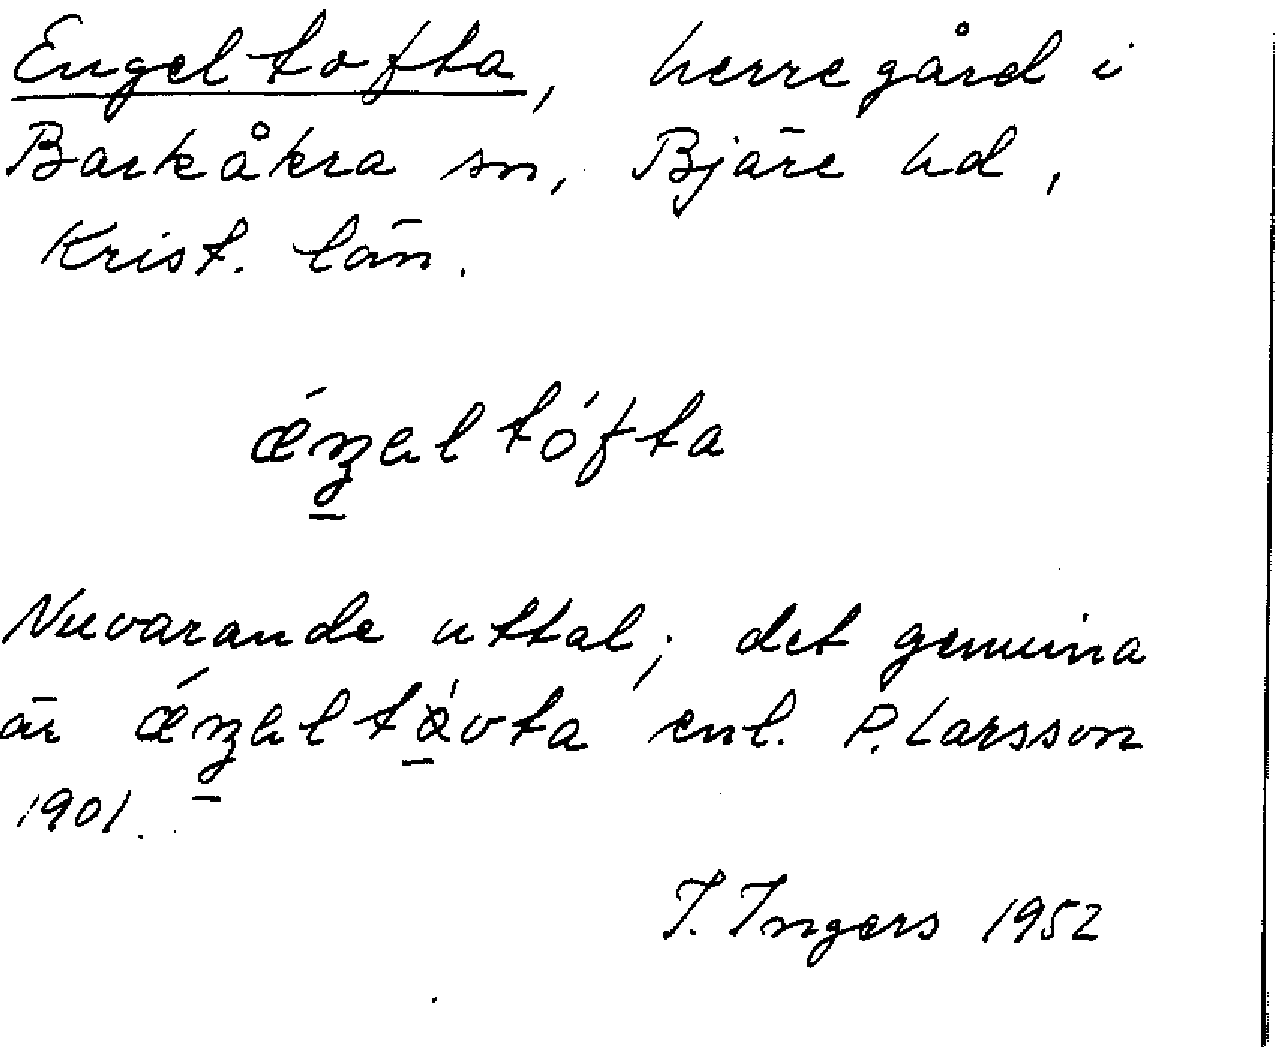 Engeltofta, herregård i
Barkåkra sn, Bjäre hd,
Krist. län.
ǽŋ̱əltófta
Nuvarande uttal; det genuina
är ǽŋ̱əltá̱vta enl. P. Larsson
1901.
I. Ingers 1952